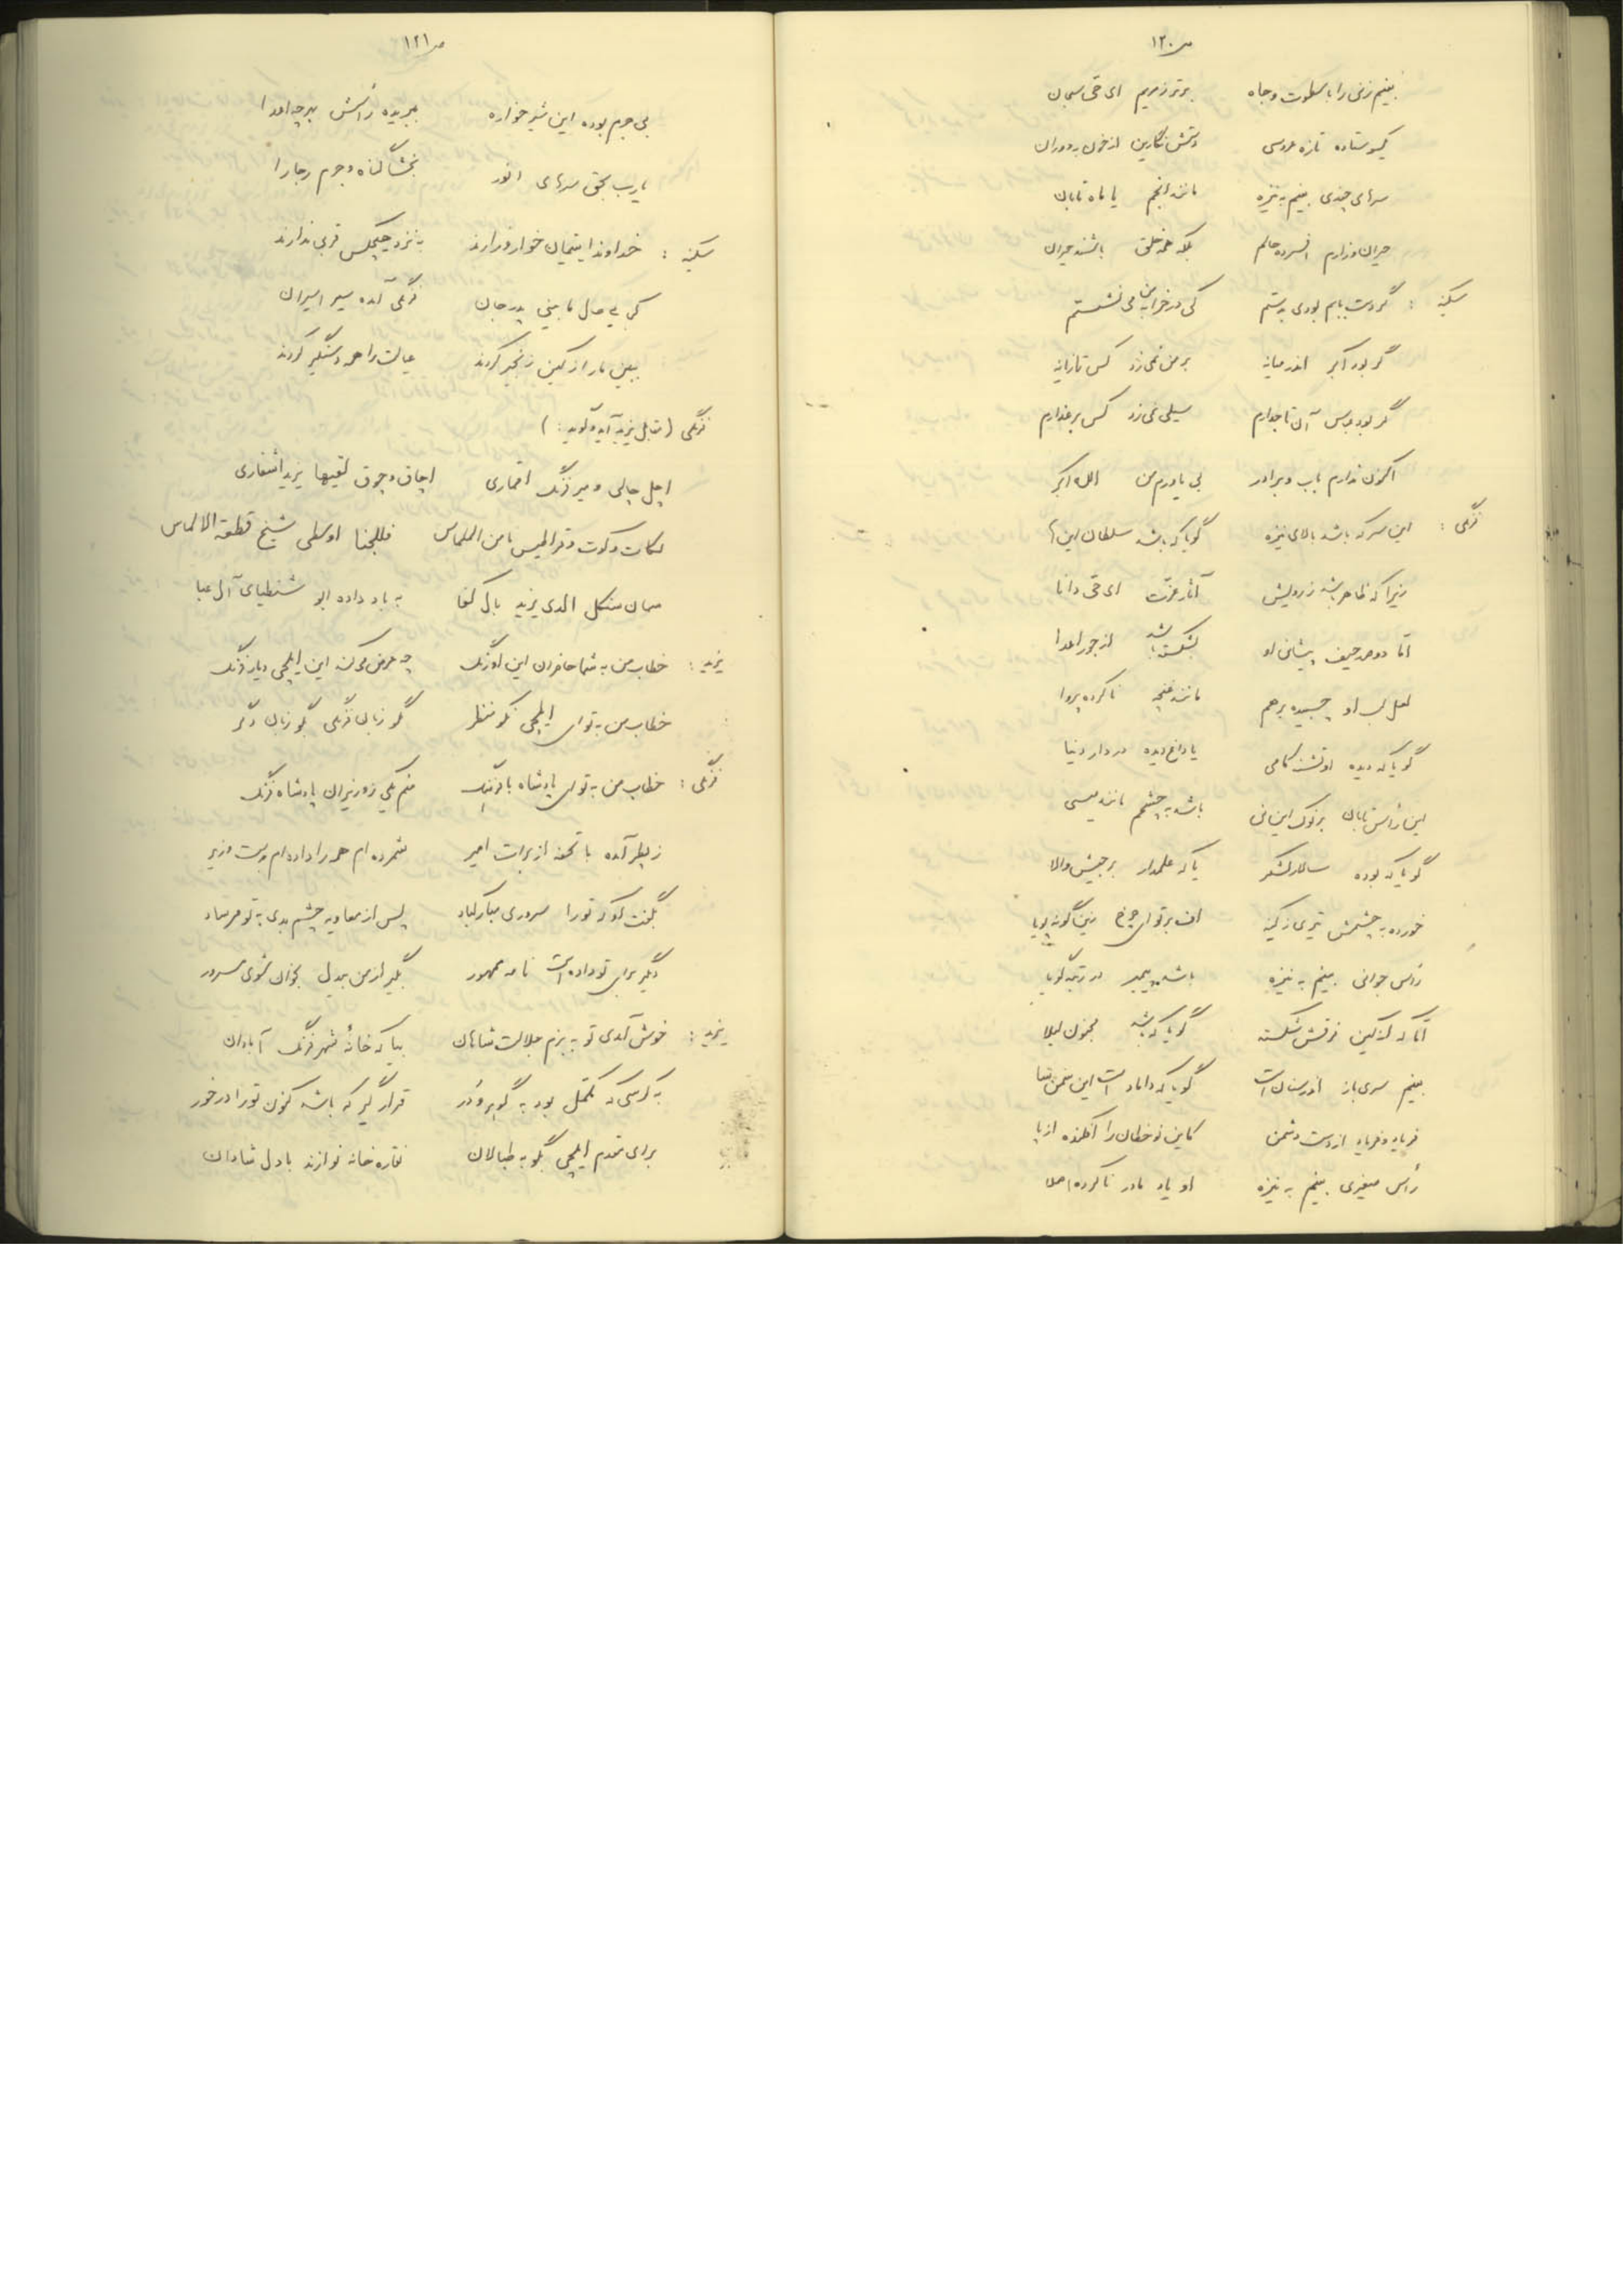 ص ۱۲۰
بینم زنی را با سطوت و جاه برتر ز مریم ای حی سبحان
یکسو ستاده تازه عروسی دستش نگارین از خون به دوران
سرهای چندی بینم به نیزه مانند انجم یا ماه تابان
حیران و زارم افسرده حالم بلکه همه خلق باشند حیران
سکینه : گر دست بابم بودی به دستم کی در خرابه من می‌نشستم
گر بود اکبر اندر میانه بر من نمی‌زد کس تازیانه
گر بود عباس آن تاجدارم سیلی نمی‌زد کس بر عذارم
اکنون ندارم باب و برادر بی یاورم من الله اکبر
فرنگی : این سر که باشد بالای نیزه گویا که باشد سلطان اینها
زیرا که ظاهر باشد ز رویش آثار عزت ای حی دانا
اما دو صد حیف پیشانی او بشکسته باشد از جور اعدا
لعل لب او چسبیده بر هم مانند غنچه ناکرده پروا
گویا که دیده او تشنه کامی یا داغ دیده در دار دنیا
این رأس تابان بر نوک این نی باشد به چشمم مانند عیسی
گویا که بوده سالار لشکر یا که علمدار بر جیش والا
خورده به چشمش تیری ز کینه اف بر تو ای چرخ زین گونه پویا
رأس جوانی بینم به نیزه باشد پیمبر در رتبه گویا
اما که از کین فرقش شکسته گویا که باشد مجنون لیلا
بینم سری باز اندر سنان است گویا که داماد است این سمن سا
فریاد و فریاد از دست دشمن کاین نوخطان را افکنده از پا
رأس صغیری بینم به نیزه او یاد مادر ناکرده اصلا
ص ۱۲۱
بی جرم بوده این شیرخواره ببریده رأسش بهر چه اعدا
یارب بحق سرهای انور بخشا گناه و جرم رجا را
سکینه : خداوندا یتیمان خوار و زارند به نزد هیچکس قربی ندارند
کجایی حال ما بینی پدر جان فرنگی آمده سیر اسیران
ببین ما را از کین زنجیر کردند عیالت را همه دستگیر کردند
فرنگی (مقابل یزید آید و گوید : )
اچل چالی و میر فرنگ اقماری اچاق و چوق لقیها یزید اشفاری
لکات و کوت و قرالمیس یا من الملماس فللجنا اوسطی شیخ قطعة الالماس
سمان منکل الدی یزید بال کفا به باد داده ابو شنطیای آل عبا
یزید : خطاب من به شما حاضران این اورنگ چه عرض می‌کند این ایلچی دیار فرنگ
خطاب من به تو ای ایلچی نکو منظر مگو زبان فرنگی بگو زبان دگر
فرنگی : خطاب من به تو ای پادشاه با فرهنگ منم یکی ز وزیران پادشاه فرنگ
ز پطر آمده با تحفه از برات امیر شمرده‌ام همه را داده‌ام بدست وزیر
بگفت گو که تو را سروری مبارکباد پس از معاویه چشم بدی به تو مرساد
دگر برای تو داده است نامه ممهور بگیر از من بیدل بخوان شوی مسرور
یزید : خوش آمدی تو به بزم جلالت شاهان بیا که خانهٔ شهر فرنگ آبادان
به کرسی که مکمل بود به گوهر و در قرار گیر که باشد کنون تو را در خور
برای مقدم ایلچی بگو به طبالان نقاره خانه نوازند با دل شادان